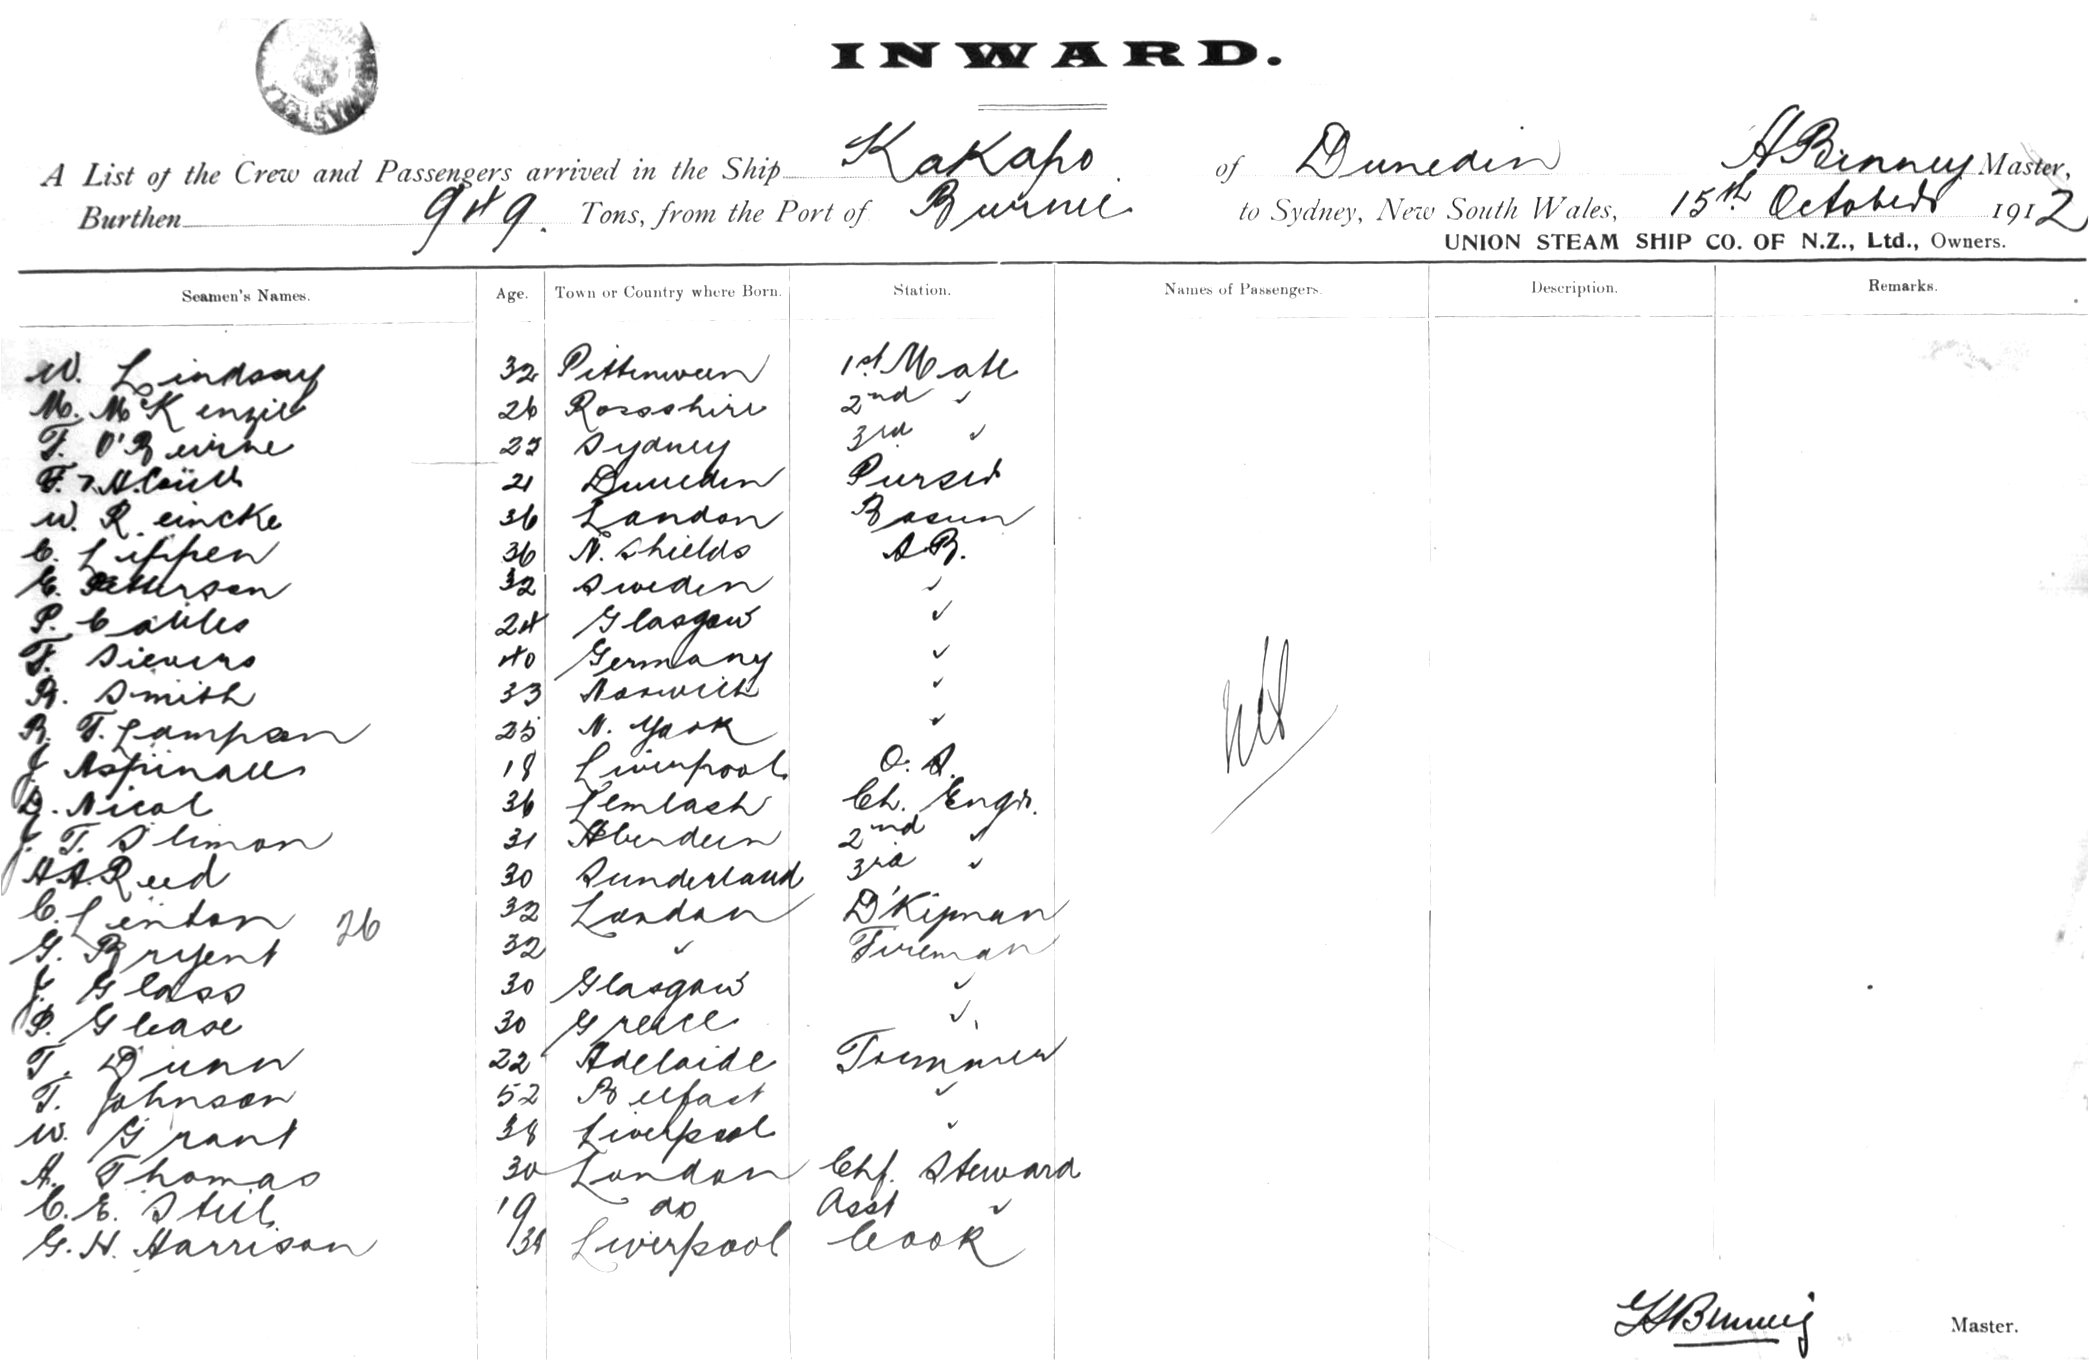 INWARD.
A List of the Crew and Passengers arrived in the Ship Kakapo of Dunedin A Binney Master,
Burthen 949. Tons, from the Port of Burnie to Sydney, New South Wales, 15th October 1912
UNION STEAM SHIP CO. OF N.Z., Ltd., Owners.
Seamen's Names. Age. Town or Country where Born. Station. Names of Passengers. Description. Remarks.
W. Lindsay 32 Pittenween 1st Mate
M. McKenzie 26 Rossshire 2nd "
F. O'Beirne 23 Sydney 3rd "
F. 21 Dunedin Purser
W. Reincke 36 London Bosun
C. Lippen 36 N. Shields A.B.
E. Petterson 32 Sweden "
P. 24 Glasgow "
F. Sievers 40 Germany "
R. Smith 33 Norwich "
R. T. Lampson 25 N. York "
J. Aspinall 18 Liverpool O. S.
D. Nicol 36 Lemlash Ch. Engr.
J. T. Slimon 31 Aberdeen 2nd "
A. A. Reed 30 Sunderland 3rd "
C. Lenton 26 32 London D'Kipman
G. Bryent 32 " Fireman
J. Glass 30 Glasgow "
P. Glease 30 Greece "
T. Dunn 22 Adelaide Trimmer
T. Johnson 52 Belfast "
W. Grant 38 Liverpool "
A. Thomas 30 London Chf. Steward
C. E. Steil 19 do Asst "
G. H. Harrison 38 Liverpool Cook
Master.